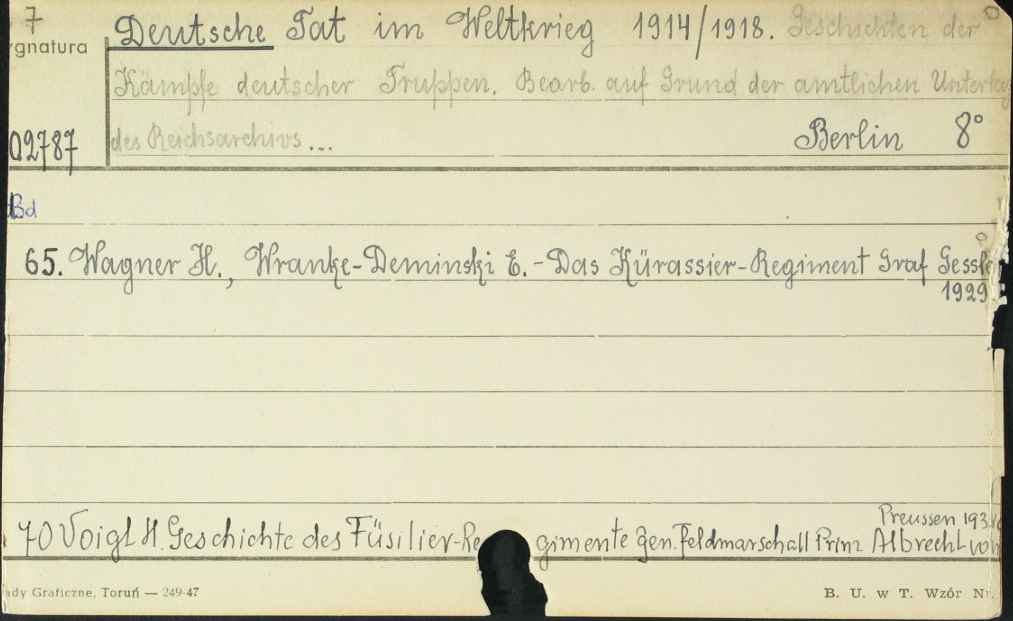 7
ygnatura
Deutsche Tat im Weltkrieg 1914/1918. Geschichten der
Kämpfe deutscher Truppen. Bearb. auf Grund der amtlichen Unterlag
02787
des Reichsarchivs... Berlin 8°
Bd
65. Wagner H., Wranke-Deminski E. - Das Kürassier-Regiment Graf Gessle
1929
Preussen 193
70 Voigt H. Geschichte des Füsilier-Re gimente Gen. Feldmarschall Prinz Albrecht von
ady Graficzne, Toruń — 249-47
B. U. w T. Wzór Nr.